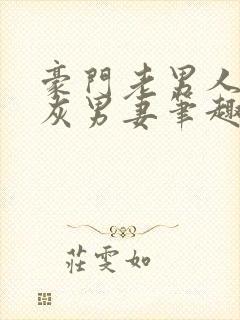 豪門老男人
灰男妻筆趣
莊雯如